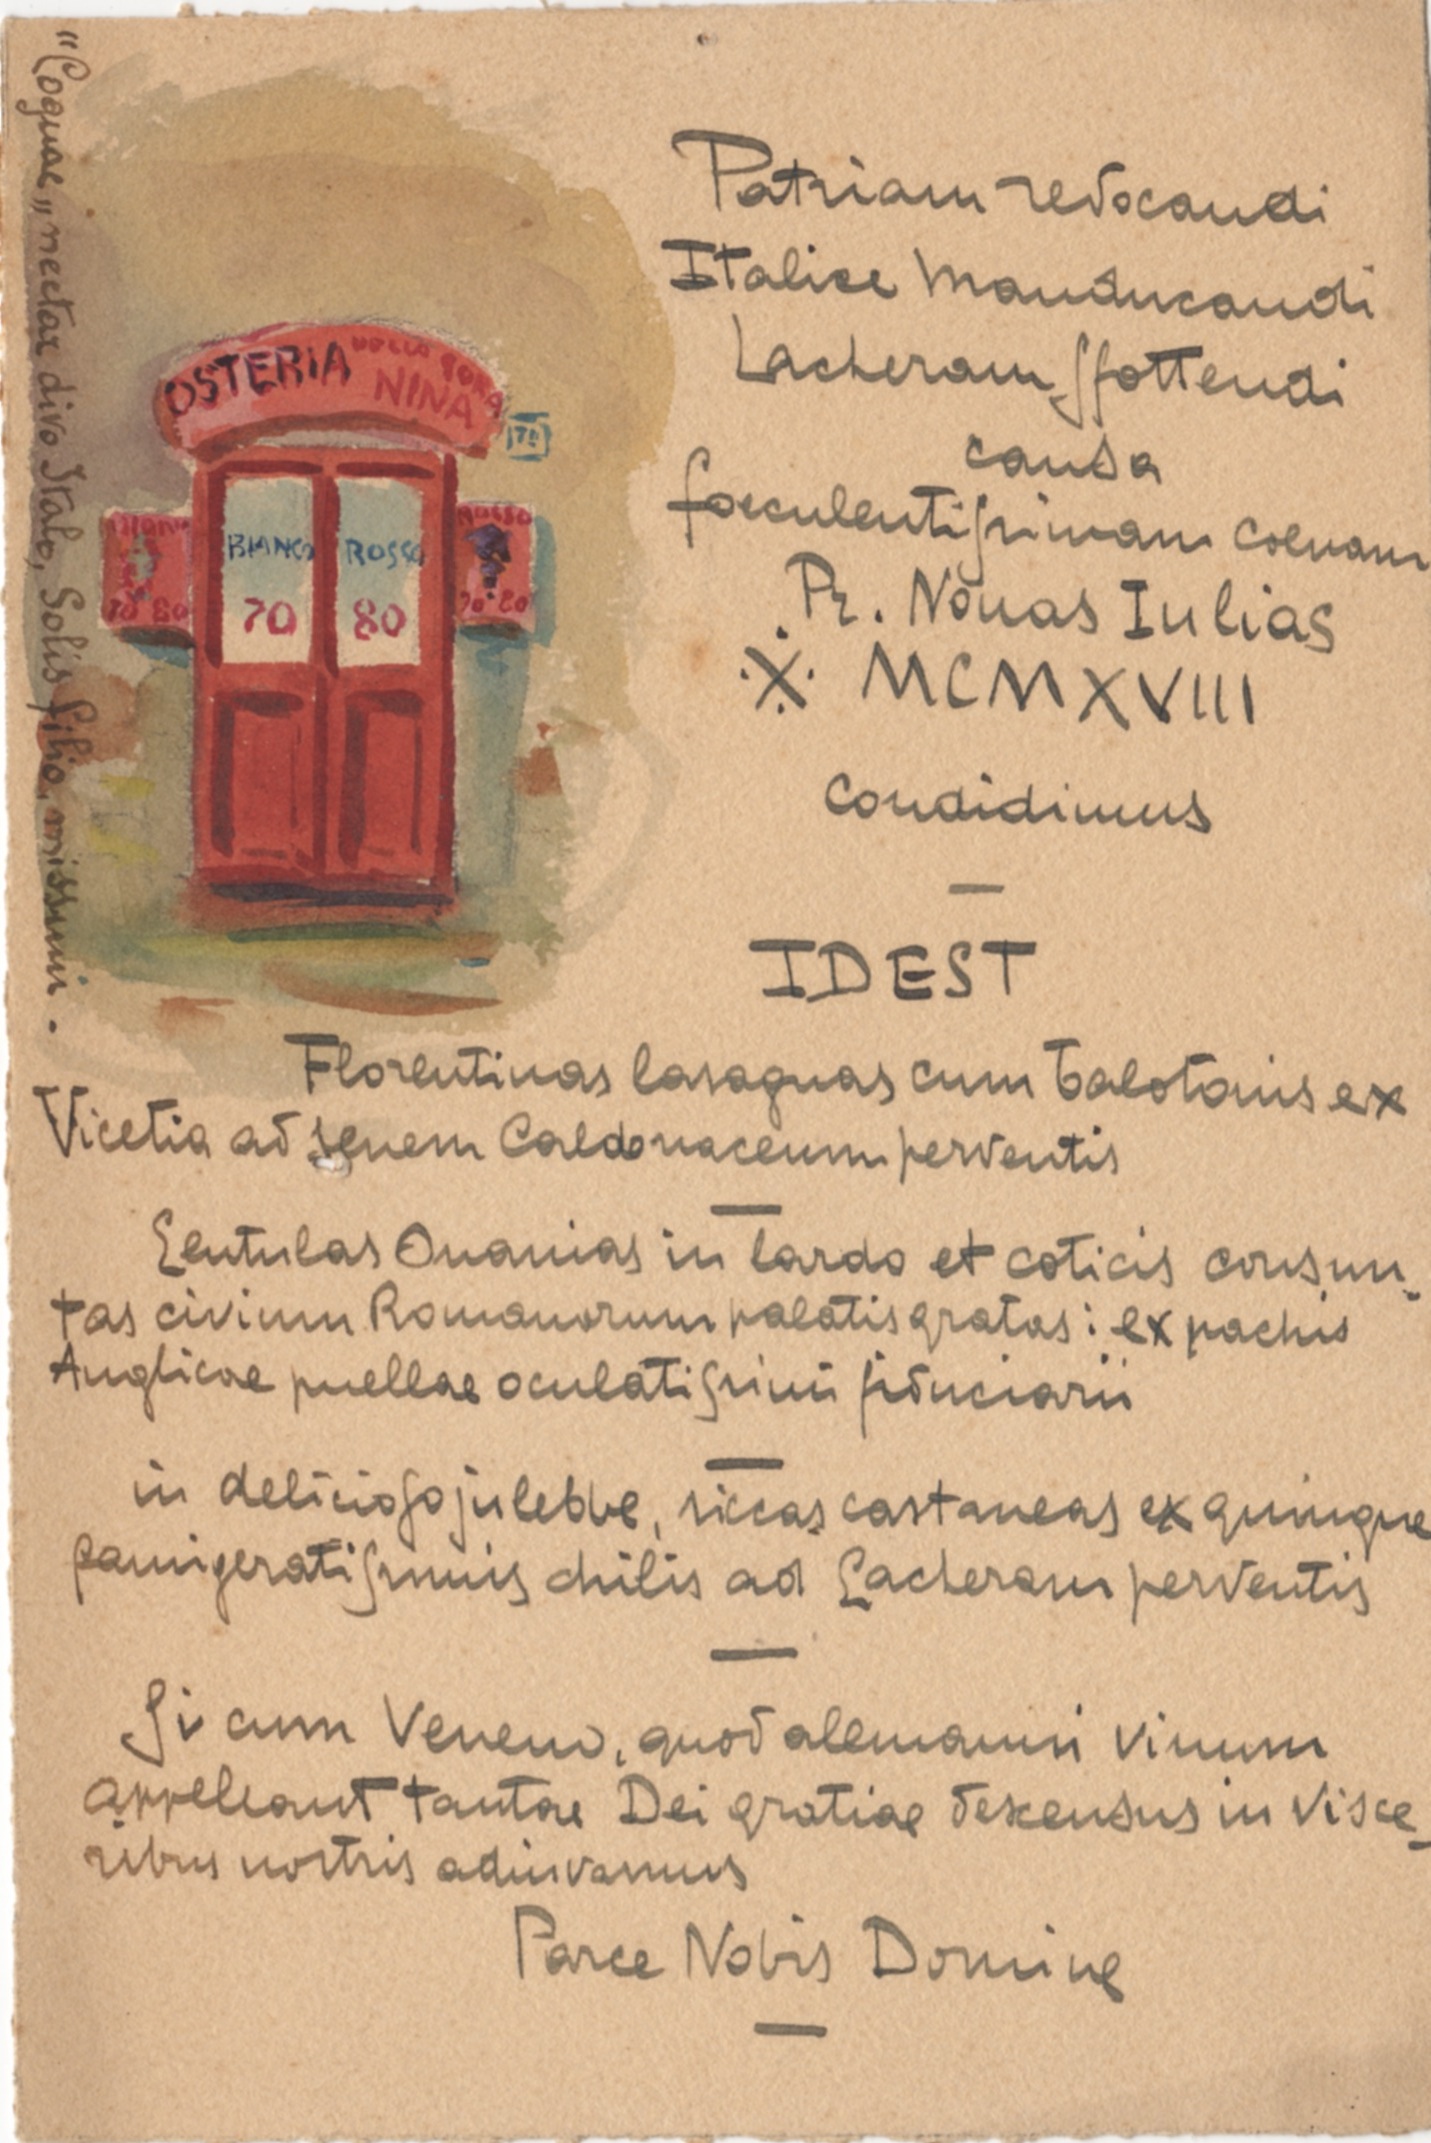 "Cognac" nectar divo Italo, Solis filio, missum.
OSTERIA DELLA SORA
NINA
BIANCO ROSSO
70 80
ROSSO
70 80
70 80
Patriam revocandi
Italice Manducandi
Lacheram sfottendi
causa
foeculentissimam coenam
Pr. Nonas Iulias
·X· MCMXVIII
condidimus
—
IDEST
Florentinas lasagnas cum balotanis ex
Vicetia ad senem Caldonaceum perventis
—
Lentulas Onanias in lardo et coticis consun-
tas civium Romanorum palatis gratas: ex pachis
Anglicae puellae oculatissimi fiduciarii
—
in delicioso julebbe, siccas castaneas ex quinque
famigeratissimis chilis ad Lacheram perventis
—
Si cum Veneno, quod alemanni vinum
appellant tantae Dei gratiae descensus in visce-
ribus nostris adiuvamus
Parce Nobis Domine
—